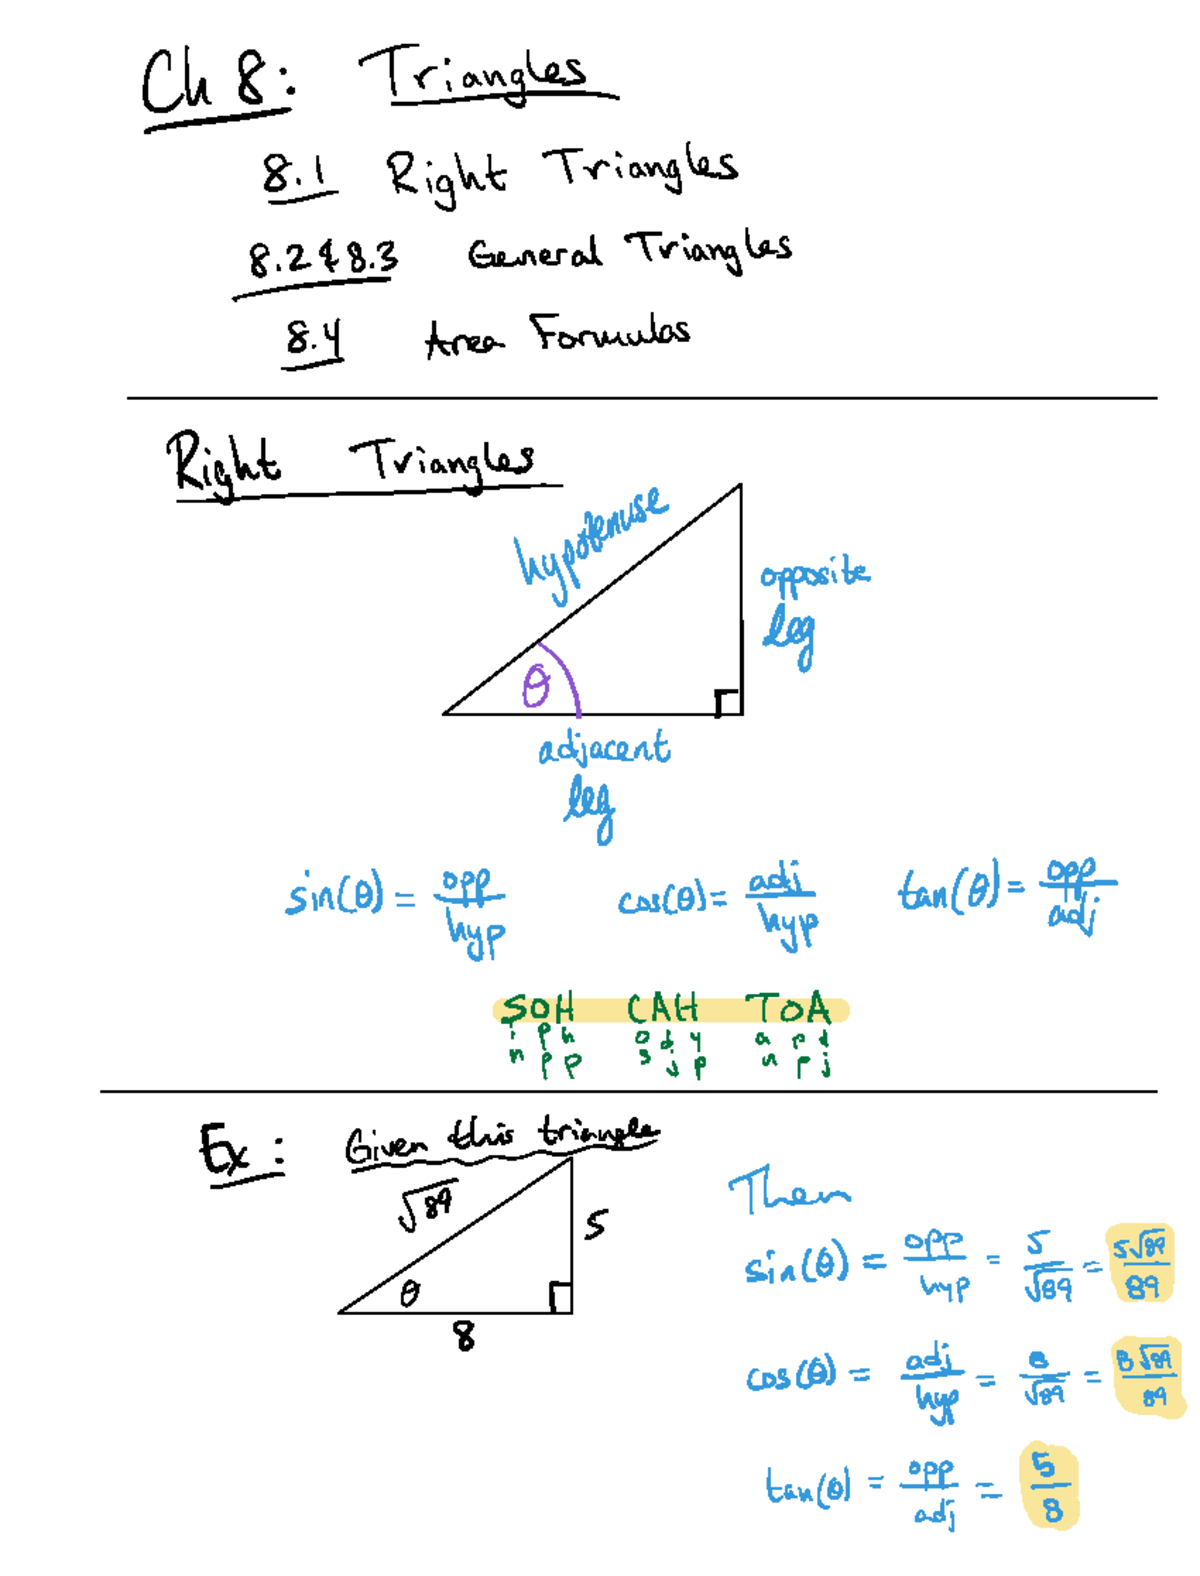 Ch 8: Triangles
8.1 Right Triangles
8.2 & 8.3 General Triangles
8.4 Area Formulas
Right Triangles
hypotenuse
opposite
leg
θ
adjacent
leg
sin(θ) = opp/hyp cos(θ) = adj/hyp tan(θ) = opp/adj
SOH CAH TOA
i p h o d y a p d
n p p s j p n p j
Ex: Given this triangle
√89
5
θ
8
Then
sin(θ) = opp/hyp = 5/√89 = 5√89/89
cos(θ) = adj/hyp = 8/√89 = 8√89/89
tan(θ) = opp/adj = 5/8